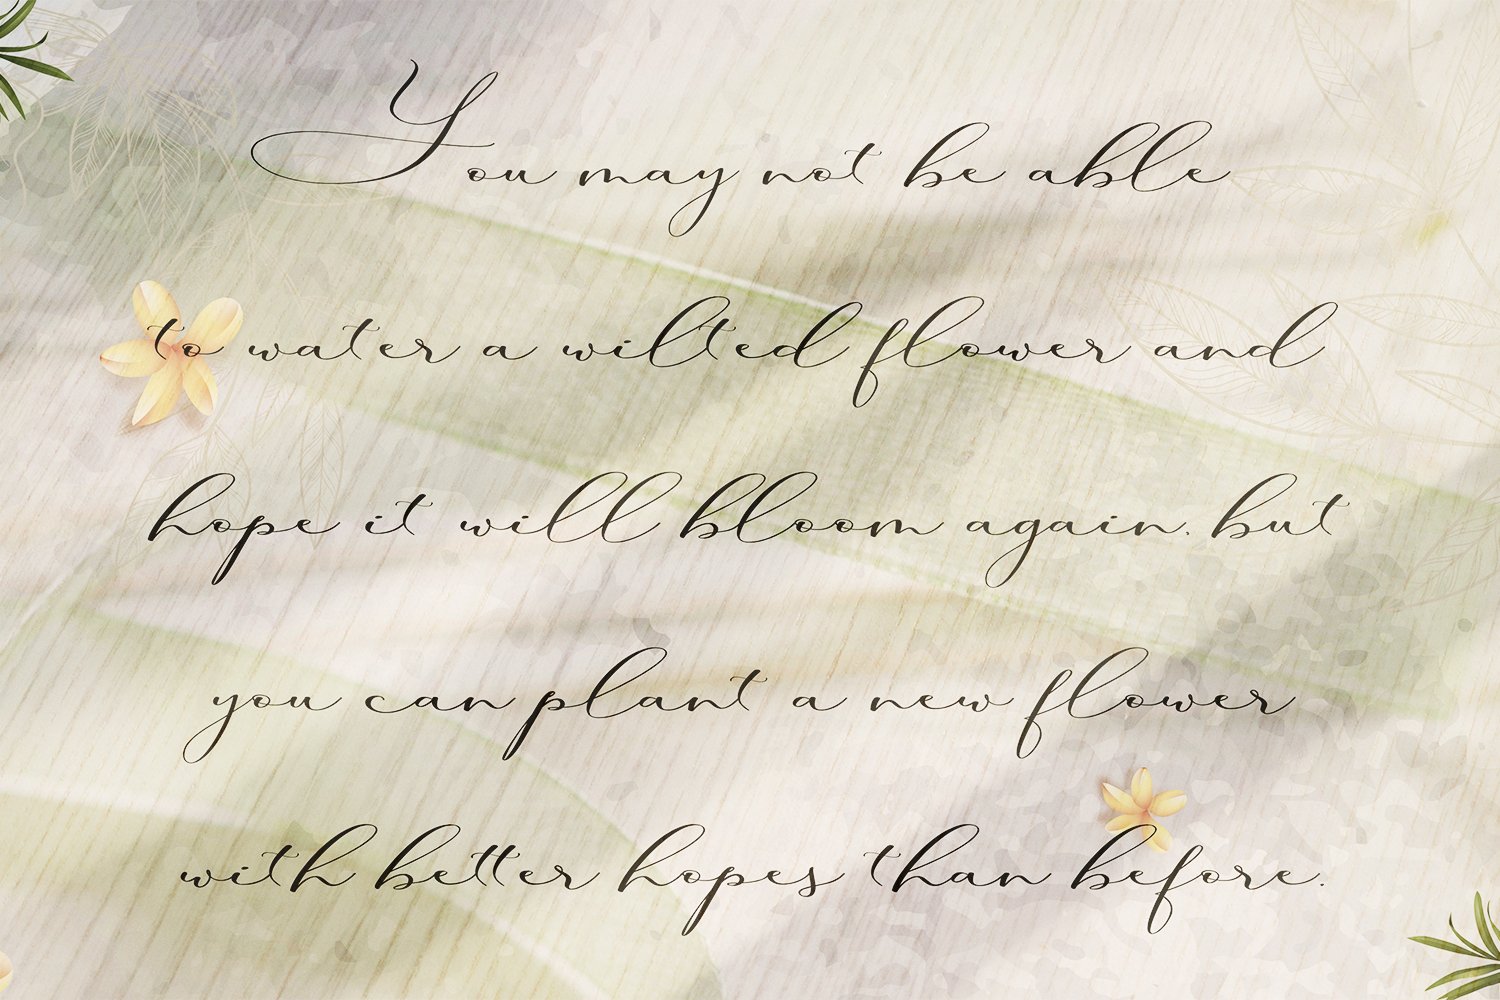 You may not be able
to water a wilted flower and
hope it will bloom again. but
you can plant a new flower
with better hopes than before.